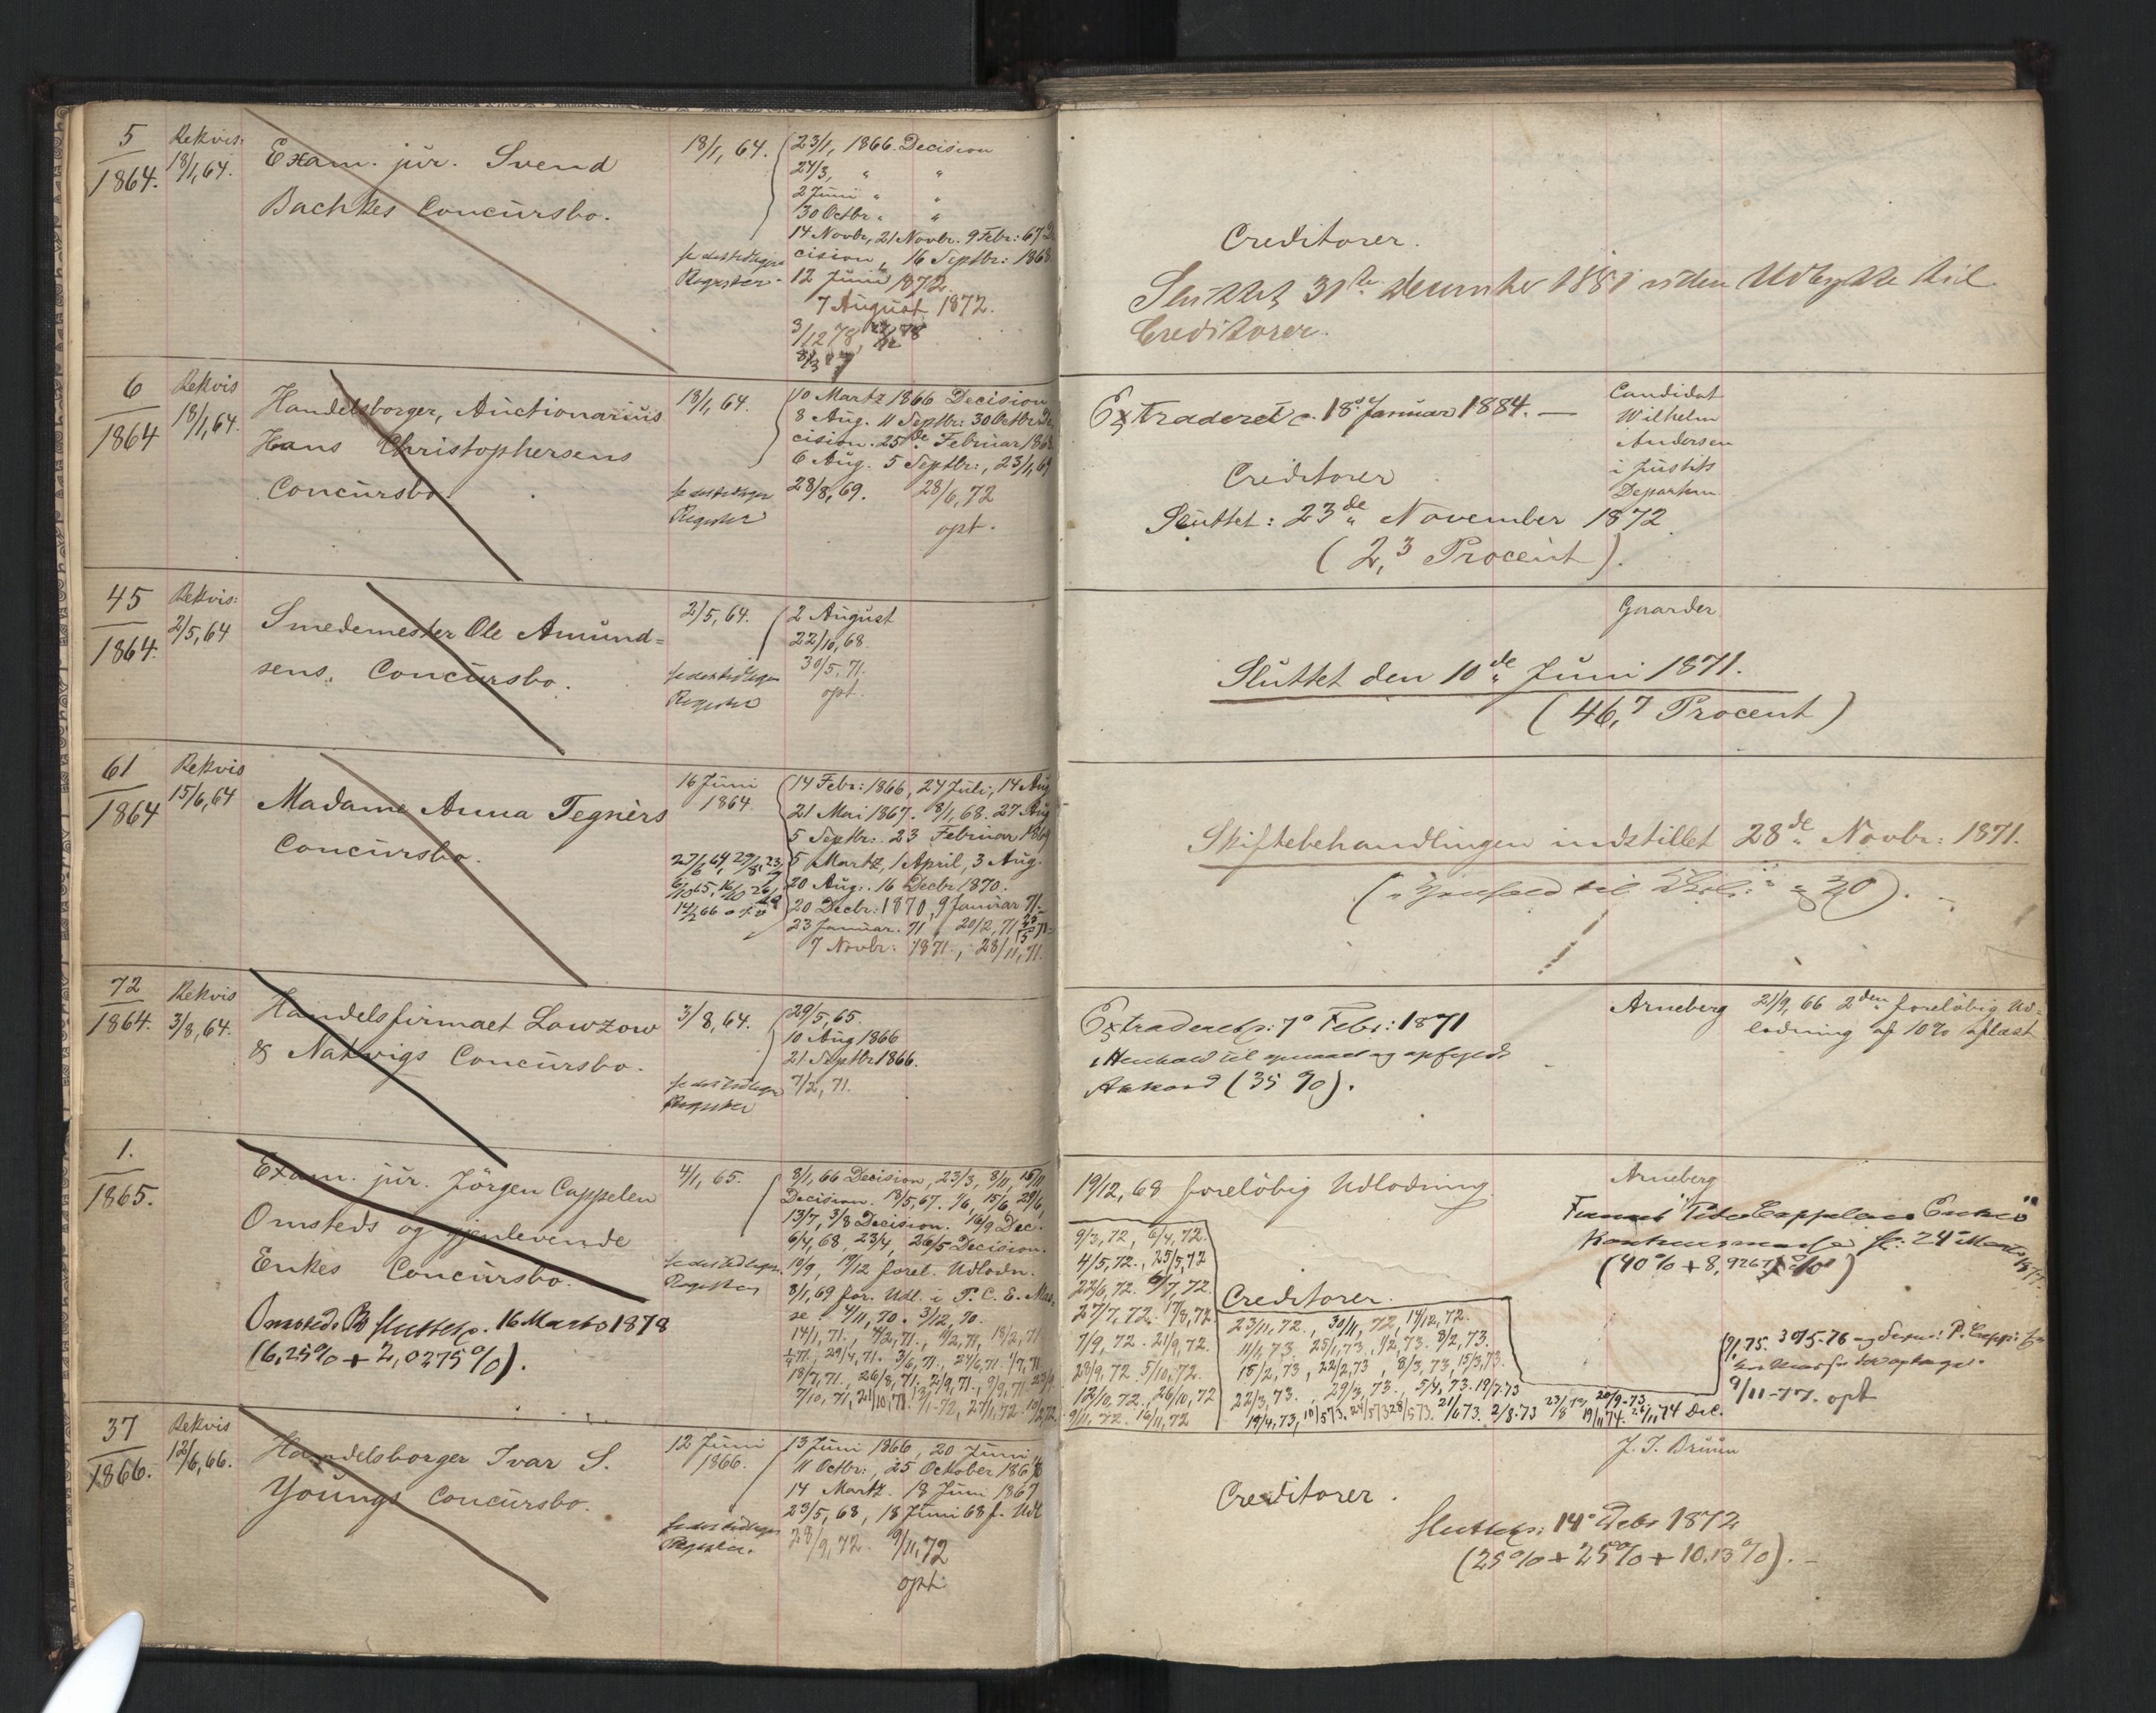 5
1864.
Rekvis:
18/1, 64.
Exam. jur. Svend
Bachkes Concursbo.
18/1, 64.
se det tidligere
Register.
23/1, 1866. Decision
24/3, " "
2 Juni " "
30 Octbr. " "
14 Novbr, 21 Novbr. 9 Febr: 67 De
cision, 16 Septbr: 1868
12 Juni 1872.
7 August 1872.
3/12 78,
Creditorer.
Sluttet 31te december 1881 uden Udbytte til
Creditorer.
6
1864
Rekvis
18/1, 64.
Handelsborger, Auctionarius
Hans Christophersens
Concursbo.
18/1, 64.
se det tidligere
Register
10 Martz 1866 Decision
8 Aug. 11 Septbr: 30 Octbr De
cision. 25de Februar 1868
6 Aug. 5 Septbr:, 23/1, 69
28/8, 69. 28/6, 72
opt.
Extraderet p. 18de Januar 1884. —
Creditorer
Sluttet: 23de November 1872.
(2,3 Procent).
Candidat
Wilhelm
Andersen
i Justits
Departem
45
1864.
Rekvis:
2/5, 64
Smedemester Ole Amund=
sens. Concursbo.
2/5, 64.
se det tidligere
Register
2 August
22/10, 68.
30/5, 71.
opt.
Gaarder
Sluttet den 10de Juni 1871.
(46,7 Procent)
61
1864
Rekvis
15/6, 64
Madame Anna Tegnèrs
Concursbo.
16 Juni
1864.
14 Febr: 1866, 24 Juli, 14 Aug
21 Mai 1867. 8/1, 68. 27 Aug
5 Septbr: 23 Februar 1869
5 Martz, 1 April, 3 Aug.
20 Aug. 16 Decbr 1870.
20 Decbr: 1870, 9 Januar 71.
23 Januar. 71, 20/2, 71
7 Novbr: 1871., 28/11, 71.
Skiftebehandlingen indstillet 28de Novbr: 1871.
72
1864.
Rekvis
3/8, 64.
Handelsfirmaet Lowzow
& Natvigs Concursbo.
3/8, 64.
se det tidligere
Register
29/5, 65.
10 Aug 1866
21 Septbr 1866.
7/2, 71.
Extraderet p: 7de Febr: 1871
i Henhold til
Akkord (35 %).
Arneberg
21/9, 66 2den foreløbig Ud=
lodning af 10% aflæst
1.
1865.
Exam. jur. Jörgen Cappelen
Omsteds og gjenlevende
Enkes Concursbo.
Omsteds Bo sluttet p. 16 Marts 1878
(6,25% + 2,0275%).
4/1, 65.
se det tidligere
Register
8/1, 66 Decision, 23/3, 8/11, 15/11
Decision. 18/5, 67. 1/6, 15/6, 29/6,
13/7, 3/8 Decision. 16/9 Dec.
6/4, 68, 23/4, 26/5 Decision.
10/9, 19/12 forel. Udlodn.
8/1, 69 for. Udl. i P. C. E. Mas,
se. 4/11, 70. 3/12, 70.
14/1, 71., 4/2, 71., 11/2, 71, 18/2, 71
29/4, 71. 3/6, 71., 24/6, 71. 1/7, 71
15/7, 71., 26/8, 71. 2/9, 71., 9/9, 71
7/10, 71, 21/10, 71. 13/1-72, 27/1, 72
19/12, 68 foreløbig Udlodning.
9/3, 72, 6/4, 72.
4/5, 72., 25/5, 72
22/6, 72. 6/7, 72.
27/7, 72. 17/8, 72
7/9, 72. 21/9, 72.
28/9, 72. 5/10, 72.
12/10, 72., 26/10, 72
9/11, 72. 16/11, 72
Creditorer.
23/11, 72., 30/11, 72, 14/12, 72.
11/1, 73. 25/1, 73., 1/2, 73. 8/2, 73.
15/2, 73, 22/2, 73, 8/3, 73, 15/3, 73.
22/3, 73., 29/3, 73., 5/4, 73.
19/4, 73,
Arneberg
Firmaet Peter Cappelens Enkes
(40% + 8,9267%)
9/11-77. opt
37
1866.
Rekvis
12/6, 66.
Handelsborger Ivar S.
Youngs Concursbo.
12 Juni
1866.
se det tidligere
Register.
13 Juni 1866, 20 Juni
11 Octbr:, 25 October 1866
14 Martz. 18 Juni 1867
23/5, 68, 18 Juni 68 f. Udl
28/9, 72. 9/11, 72
opt
J. J. Bruun
Creditorer.
Sluttet p: 14de Decbr 1872
(25% + 25% + 10.13%).